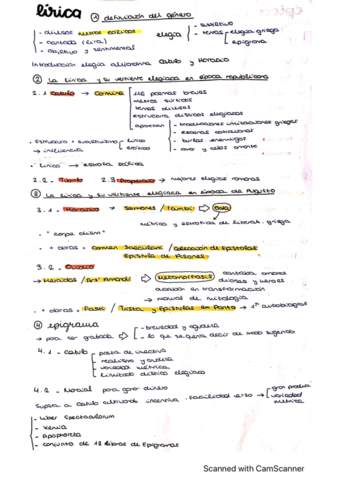 lírica ① definición del género
- diversos metros eólicos
- cantada (lira)
- subjetivo y sentimientos
elegía
- subjetivo
- temas
elegía griega
epigrama
Introducción elegía alejandrina Catulo y Horacio
② La lírica y su vertiente elegíaca en época republicana
2.1 Catulo → Carmina
116 poemas breves
metros surtidos
temas diversos
estructura dísticos elegíacos
aparecen
- traducciones imitaciones griegas
- escenas
- burlas enemigos
- amor y celos
→ influencia
lírico
- lírico → estrofa sáfica
2.2 - Tibulo 2.3 Propercio → mejores elegías romanas
③ La lírica y su vertiente elegíaca en época de Augusto
3.1 - Horacio → Sermones / Iambi → Oda
métrica y estrófica de literat. griega
- "carpe diem"
- + obras - Carmen Saeculare / colección de Epístolas
Epístola de Pisones
3.2 - Ovidio
→ Heroidas / Ars Amandi → Metamorphosis
contando amores
dioses y héroes
acaban en transformación
→ manual de mitología
- + obras: Fasti / Tristia y Epístulas ex Ponto → 1ª autobiografía
④ epigrama
- brevedad y agudeza
→ para ser grabada
- lo que se quiera decir de modo sugerido
4.1 - Catulo
poeta de invectiva
realismo y audacia
variedad métrica
dístico elegíaco
4.2 - Marcial para ganar dinero
Supera a Catulo cultivando inventiva, facilidad verso →
gran produc
variedad
métrica
- Liber Spectaculorum
- Xenia
- Apophoreta
- conjunto de 12 libros de Epigramas
Scanned with CamScanner